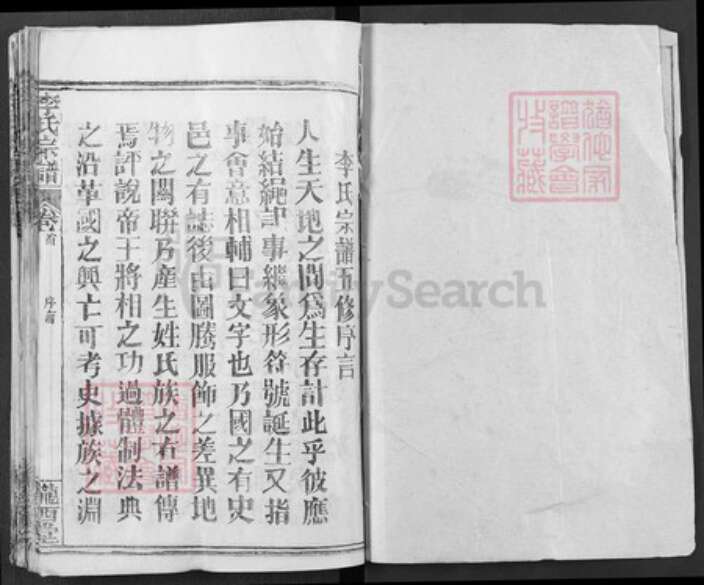 猶他家
譜學會
收藏
李氏宗譜五修序言
人生天地之間爲生存計此乎彼應
始結繩記事繼象形符號誕生又指
事會意相輔曰文字也乃國之有史
邑之有誌後由圖騰服飾之差異地
物之關聯乃產生姓氏族之有譜傳
焉評說帝王將相之功過體制法典
之沿革國之興亡可考史據族之淵
李氏宗譜
卷首
序言
隴西堂
FamilySearch